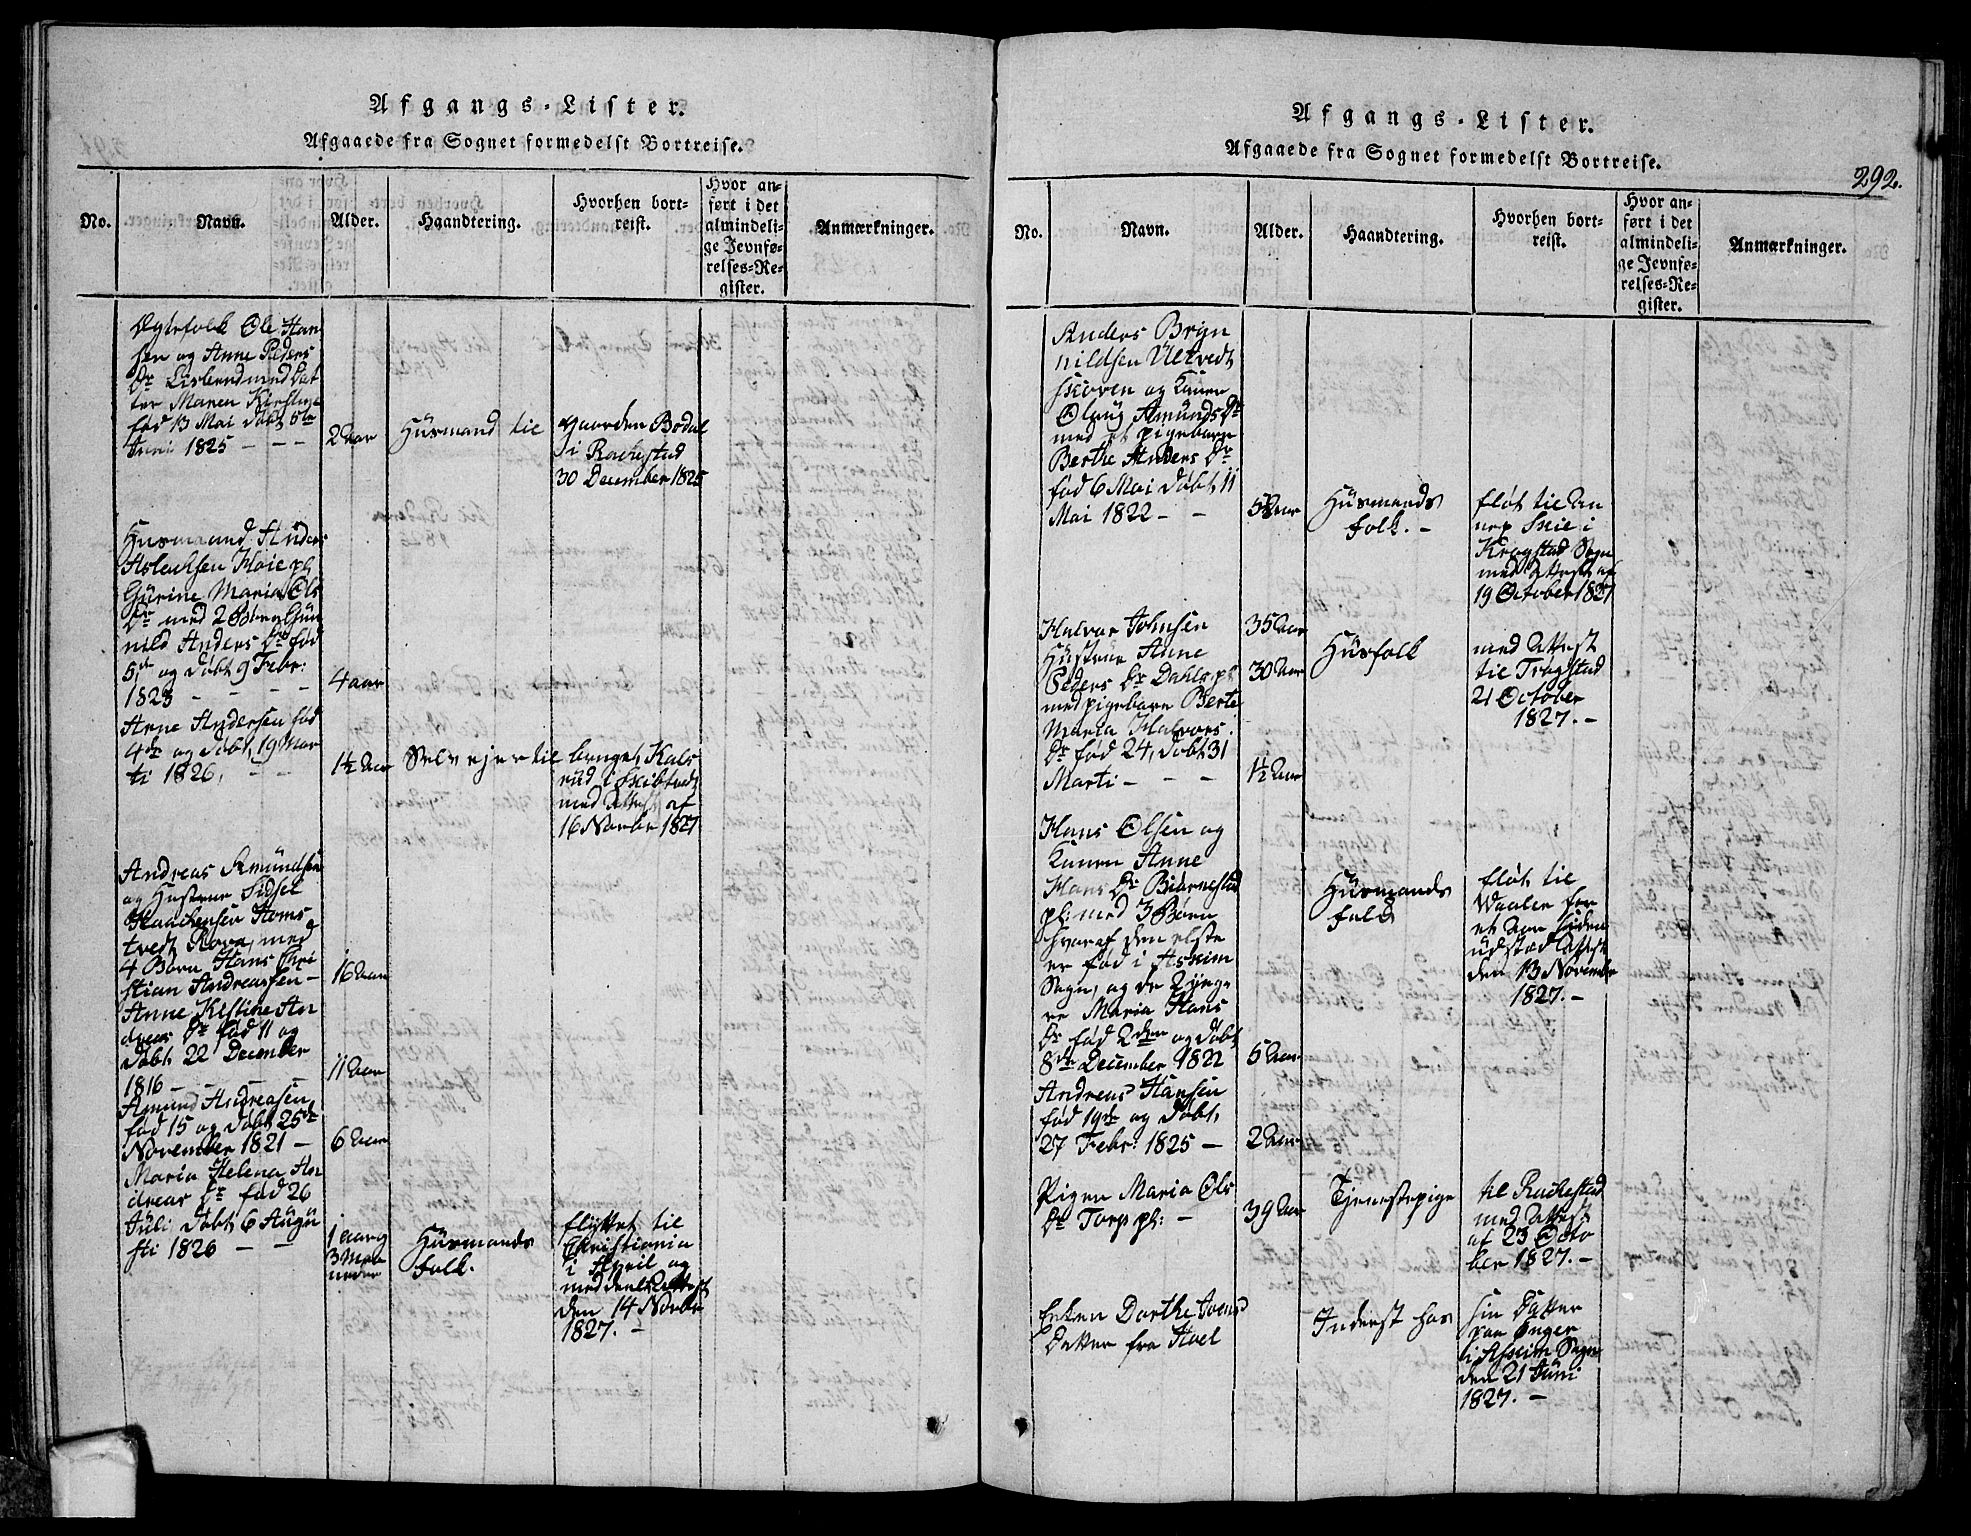 Afgangs-Lister.
Afgaaede fra Sognet formedelst Bortreise.
No.
Navn.
Alder.
Haandtering.
Hvorhen bort-
reist.
Hvor an-
ført i det
almindeli-
ge Jevnfø-
relses-Re-
gister.
Anmærkninger.
Ole Han
sen og Anne Peders
Dr med Dat
ter Maren Kirstine
fød 13 Mai døbt 5te
Juni 1825 - - -
2 Aar
Huusmand til
gaarden Bødal
i Rackestad
30 December 1825
Huusmand Anders
Aslachsen Høie pl
Gurine Maria Ols
Dr med 2 Børn Gun
nild Anders Dr fød
5te og døbt 9 Febr:
1823 - - - -
4 aar
Anne Andersen fød
4de og døbt 19 Mar
ti 1826, - -
1½ Aar
Selvejer til
Kals
rud i Skibtvedt
med Attest af
16 Novbr 1827
Andreas Amundsen
og Hustrue Sidsel
Haachensen Homs
tvedt med
4 Børn Hans Chri
stian Andreassen -
16 Aar
Anne Kistine An
dreas Dr fød 11 og
døbt 22 December
1816 - - - -
11 Aar
Amund Andreasen
fød 15 og døbt 25de
November 1821 -
6 Aar
Maria Helena An
dreas Dr fød 26
Juli døbt 6 Augu
sti 1826 - -
1 aar og
3 Maa
neder
Huusmands
folk.
flyttet til
Christiania
i April og
meddeelt Attest
den 14 Novbr
1827. -
Afgangs-Lister.
Afgaaede fra Sognet formedelst Bortreise.
292.
No.
Navn.
Alder.
Haandtering.
Hvorhen bort-
reist.
Hvor an-
ført i det
almindeli-
ge Jevnfø-
relses-Re-
gister.
Anmærkninger.
Anders Bryn
nildsen Ultvedt
skoven og Kunen
Olaug Amunds Dr
med et pigebarn
Berthe Anders Dr
fød 6 Mai døbt 11
Mai 1822 - -
5½ Aar
Huusmands
folk. -
fløt til An
nex Skie i
Krogstad Sogn
med Attest af
19 October 1827
Halvor Johnsen
35 Aar
Hustrue Anne
Peders Dr Dahls pl
30 Aar
Huusfolk
med Attest
til Trøgstad
21 October
1827. -
med pigebarn Berte
Maria Halvors
Dr fød 24, døbt 31
Marti - - -
1½ Aar
Hans Olsen og
Kunen Anne
Hans Dr Biørnestad
pl: med 3 Børn
hvoraf den elste
er fød i Askim
Sogn, og de 2 yng
re Maria Hans
Dr fød 2den og døbt
8de December 1822
5 Aar
Huusmands
folk
fløt til
Waaler for
et Aar siden
udsted Attest
den 13 November
1827. -
Andreas Hansen
fød 19de og døbt
27 Febr: 1825 -
2 Aar
Pigen Maria Ols
Dr Torp pl: -
39 Aar
Tjenestepige
til Rackestad
med Attest
af 23 Octo
ber 1827. -
Enken Dorthe Joens
Datter fra Hoel
Inderst hos
sin Datter
paa Onger
i Askim Sogn
den 21 Juni
1827. -